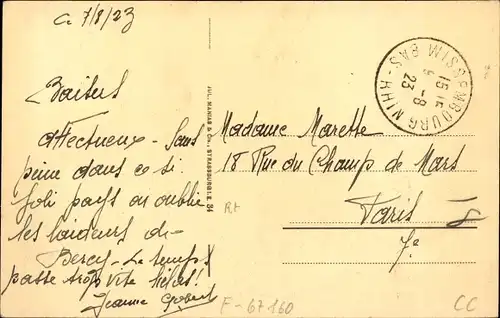 Ce 7/8/23
Baisers
affectueux - Sans
peine dans ce si
joli pays on oublie
les laideurs de
Bercy - Le temps
passe trop vite hélas!
Jeanne
JUL. MANIAS & Cie., STRASSBURG I. E. 24
WISSEMBOURG
BAS-RHIN
15
-8
23
Madame Marette
18 Rue du Champ de Mars
Paris
7e
Rt
F-67160
CC